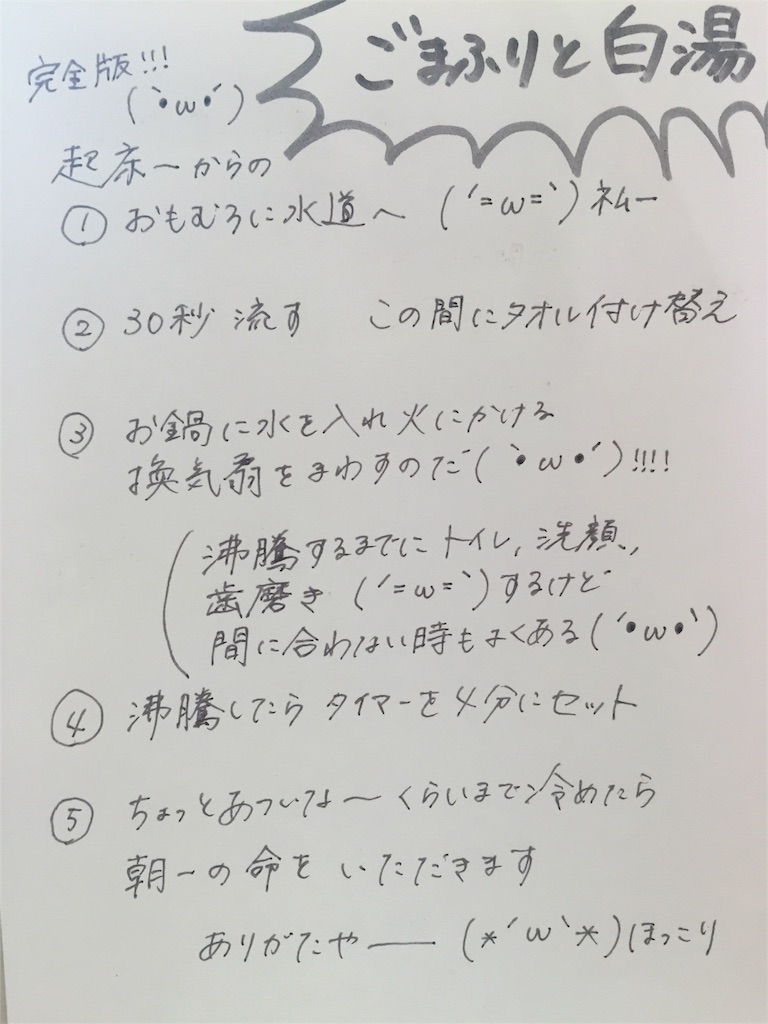 ごまふりと白湯
完全版!!!
(｀•ω•´)
起床〜からの
① おもむろに水道へ (´=ω=｀)ネムー
② 30秒 流す この間にタオル付け替え
③ お鍋に水を入れ火にかける
換気扇をまわすのだ(｀•ω•´)!!!!
(沸騰するまでにトイレ, 洗顔,
歯磨き (´=ω=｀)するけど
間に合わない時もよくある(´•ω•｀)
④ 沸騰したら タイマーを4分にセット
⑤ ちょっとあついな〜くらいまで冷めたら
朝一の命を いただきます
ありがたや—— (*´ω｀*)ほっこり